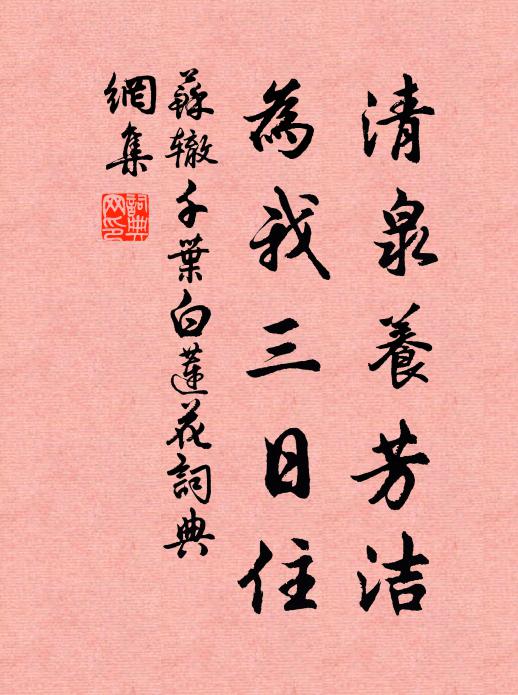 清泉養芳洁
為我三日住
蘇辙千葉白蓮花詞典
網集
詞典
网印